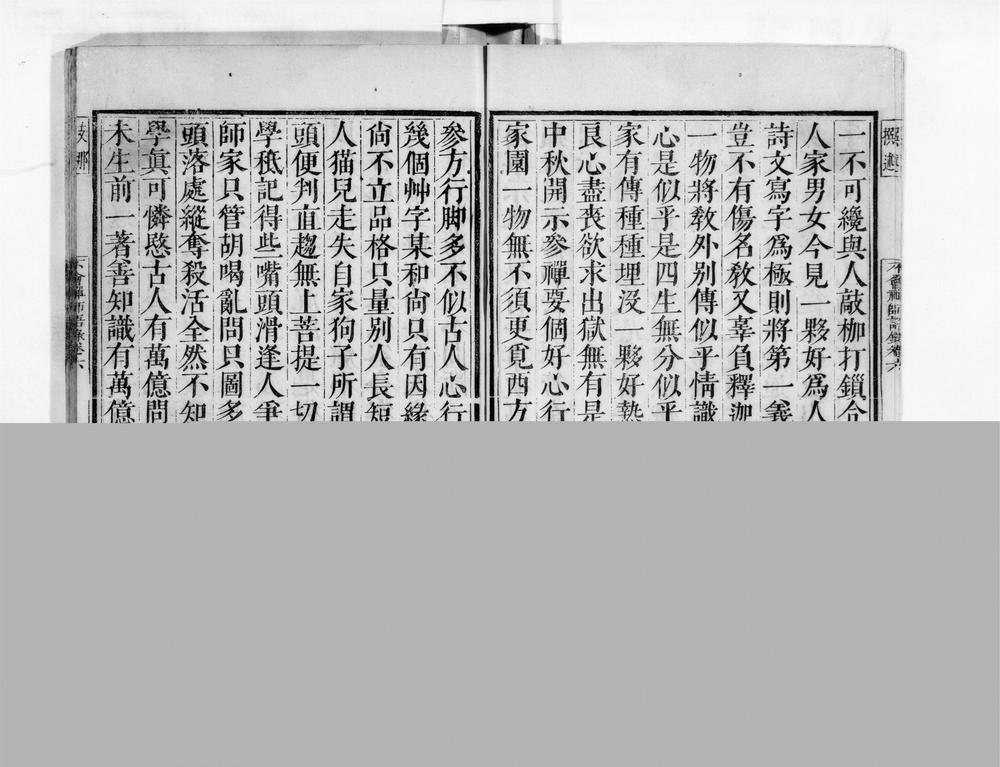 撰述
不會禪師語錄卷六
一不可纔與人敲枷打鎖令
人家男女今見一夥好爲人
詩文寫字爲極則將第一義
豈不有傷名教又辜負釋迦
一物將敎外别傳似乎情識
心是似乎是四生無分似乎
家有傳種種埋沒一夥好𫝑
良心盡喪欲求出獄無有是
中秋開示參禪要個好心行
家園一物無不須更覓西方
參方行脚多不似古人心行
幾個艸字某和尚只有因緣
尙不立品格只量别人長短
人猫兒走失自家狗子所謂
頭便判直趨無上菩提一切
學秪記得些嘴頭滑逢人爭
師家只管胡喝亂問只圖多
頭落處縱奪殺活全然不知
學眞可憐愍古人有萬億問
未生前一著善知識有萬億
不會禪師語錄卷六